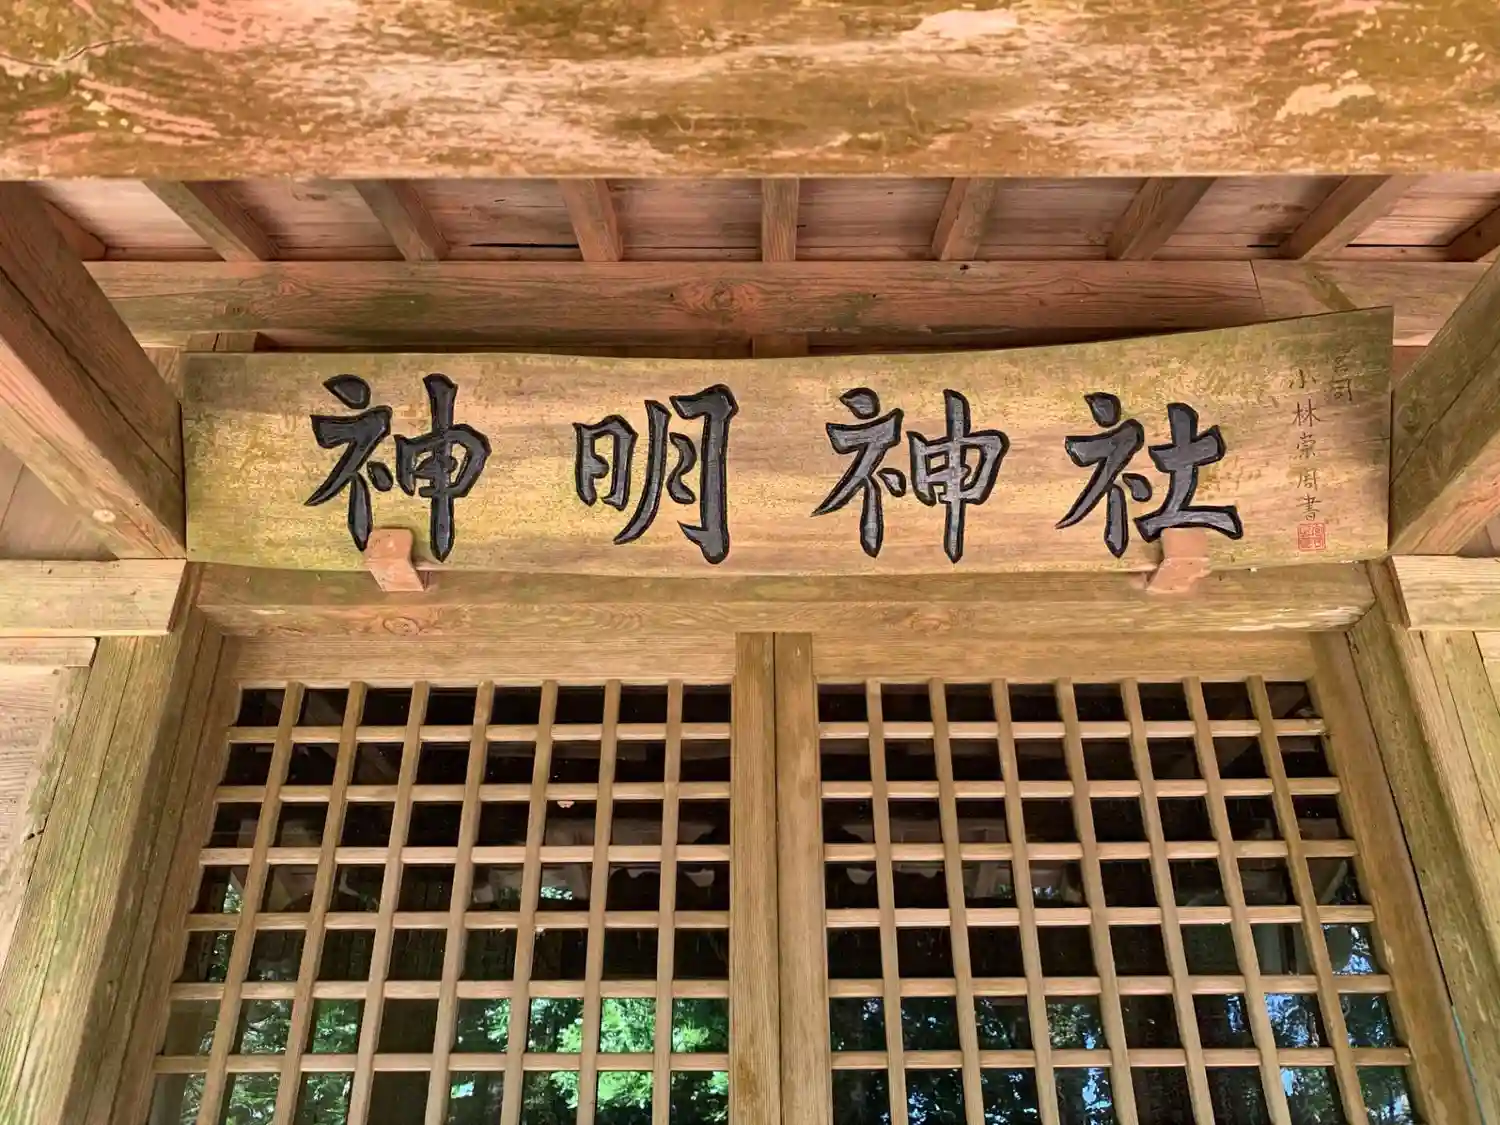 神明神社
宮司
小林榮周書